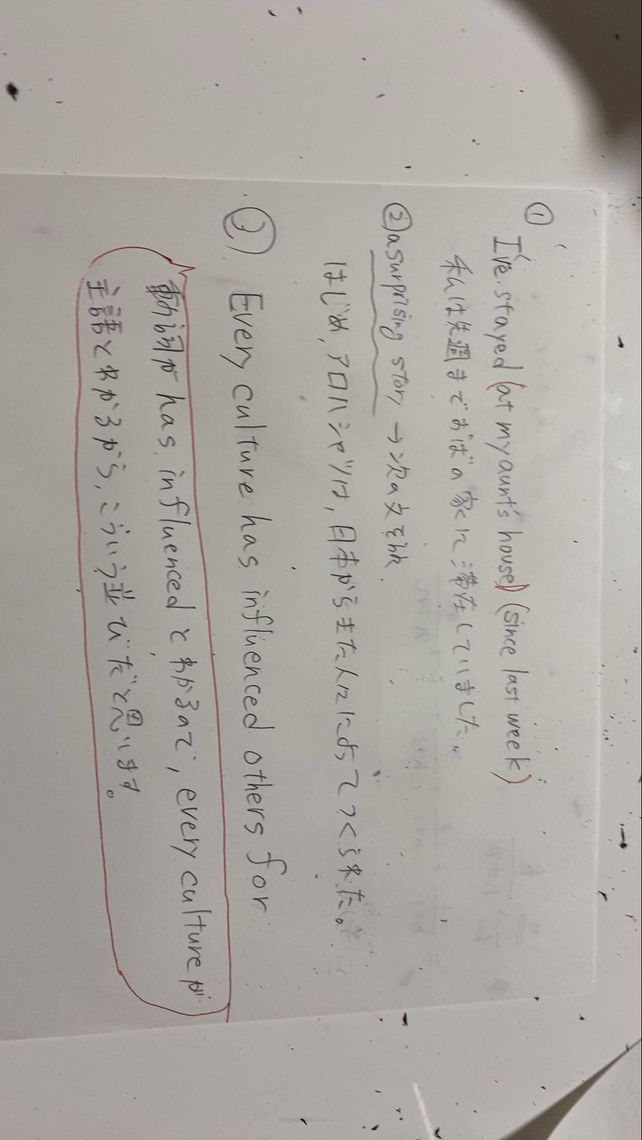 ①
I've stayed (at my aunt's house) (since last week)
私は先週までおばの家に滞在していました。
② a surprising story → 次の文を訳
はじめ、アロハシャツは、日本からきた人にによってつくられた。
③ Every culture has influenced others for
動詞が has influenced とわかるので, every culture が
主語とわかるから, こういう並びだと思います。